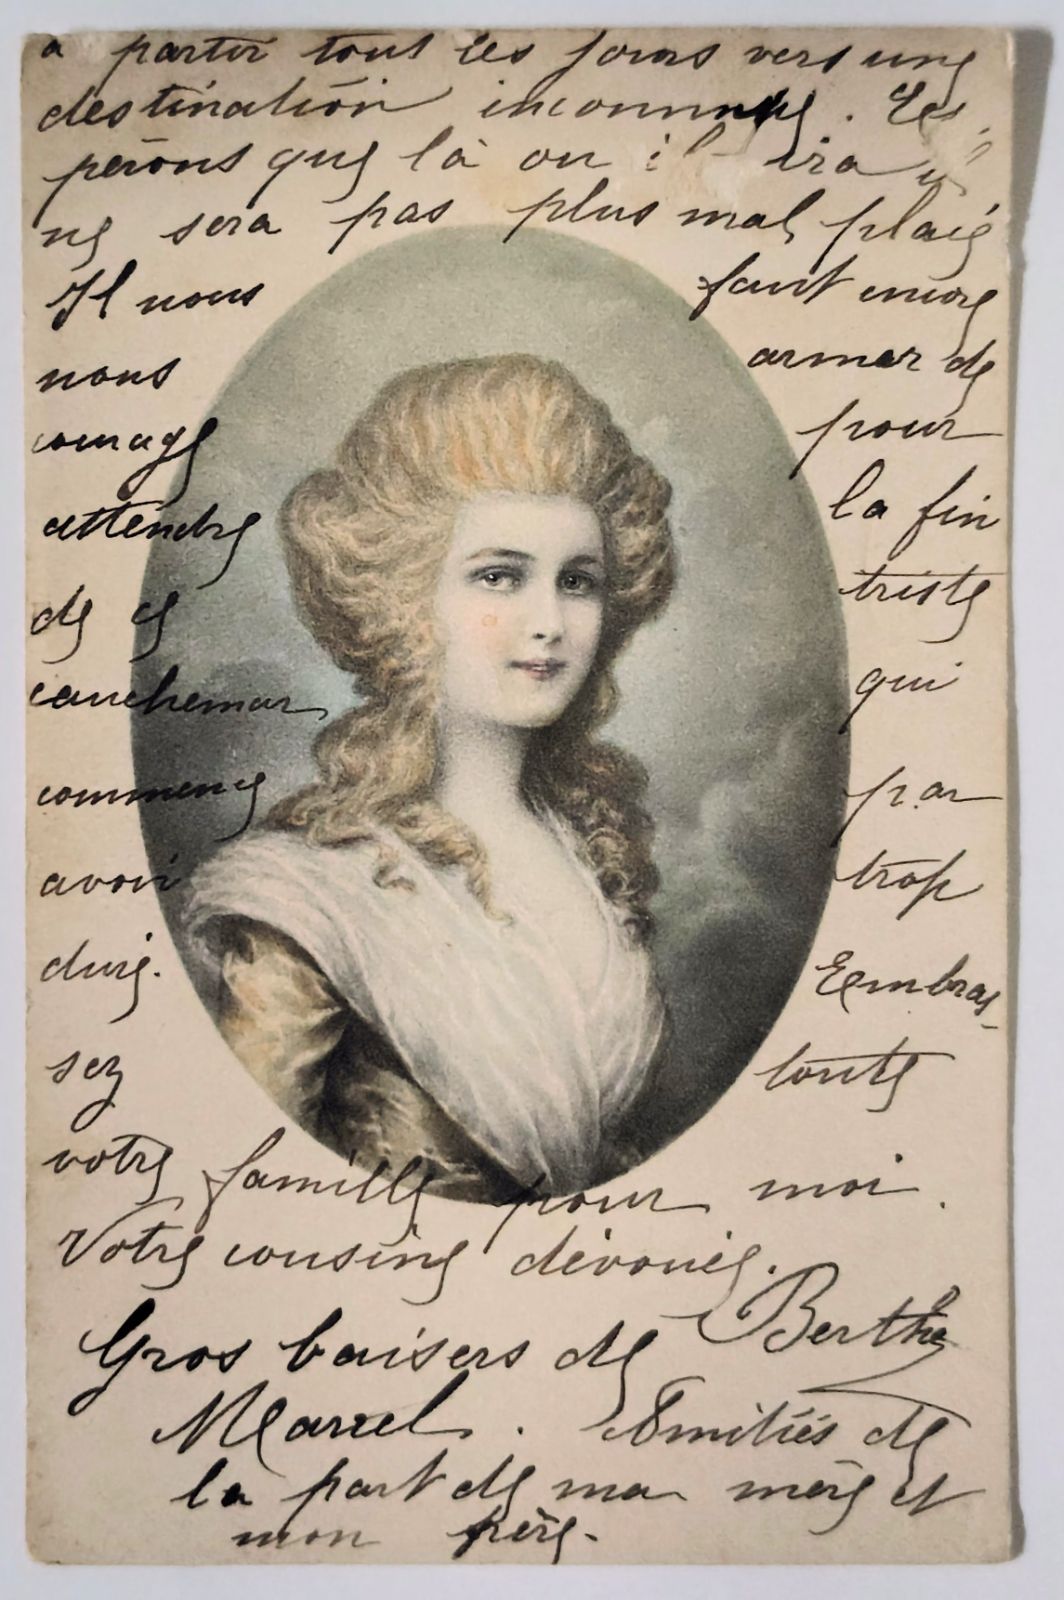 à partir tout les jours vers une
destination inconnue. Es-
pérons que là ou il ira il
ne sera pas plus mal placé
Il nous faut encore
nous armer de
courage pour
attendre la fin
de ce triste
cauchemar qui
commence par
avoir trop
duré. Embras-
sez toute
votre famille pour moi.
Votre cousine dévouée.
Berthe
Gros baisers de
Marcel. Amitiés de
la part de ma mère et
mon père.